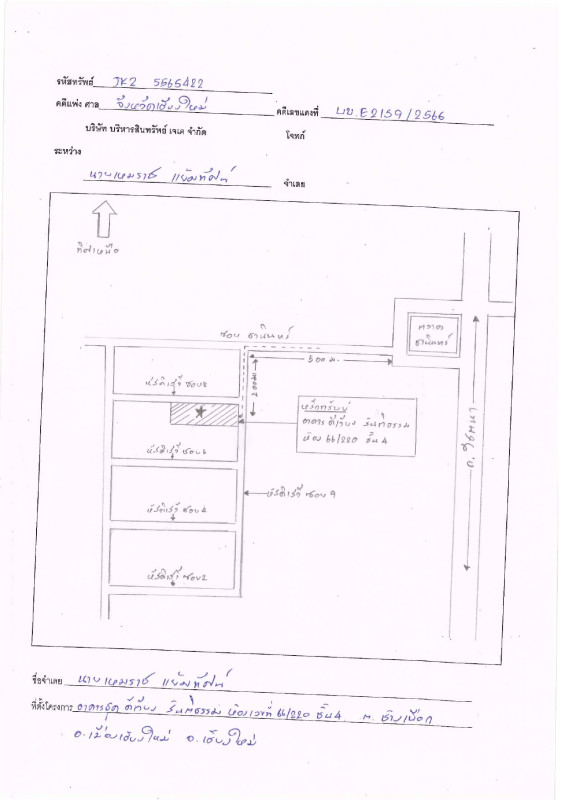 รหัสทรัพย์ JKZ 5565422
คดีแพ่ง ศาล จังหวัดเชียงใหม่ คดีเลขแดงที่ ผบ.E2159/2566
บริษัท บริหารสินทรัพย์ เจเค จำกัด โจทก์
ระหว่าง
นายเหมราช แย้มทัศน์ จำเลย
ทิศเหนือ
ซอย ธานินทร์
ตลาด
ธานินทร์
500 ม.
200 ม.
หรดิเร้า ซอย 8
หลักทรัพย์
อาคาร ดีเวียง สันติธรรม
ห้อง 66/220 ชั้น 4
หรดิเร้า ซอย 6
หรดิเร้า ซอย 9
หรดิเร้า ซอย 4
หรดิเร้า ซอย 2
ถ.โชตนา
ชื่อจำเลย นายเหมราช แย้มทัศน์
ที่ตั้งโครงการ อาคารชุด ดีเวียง สันติธรรม ห้องเลขที่ 66/220 ชั้น 4 ต. ช้างเผือก
อ.เมืองเชียงใหม่ จ.เชียงใหม่